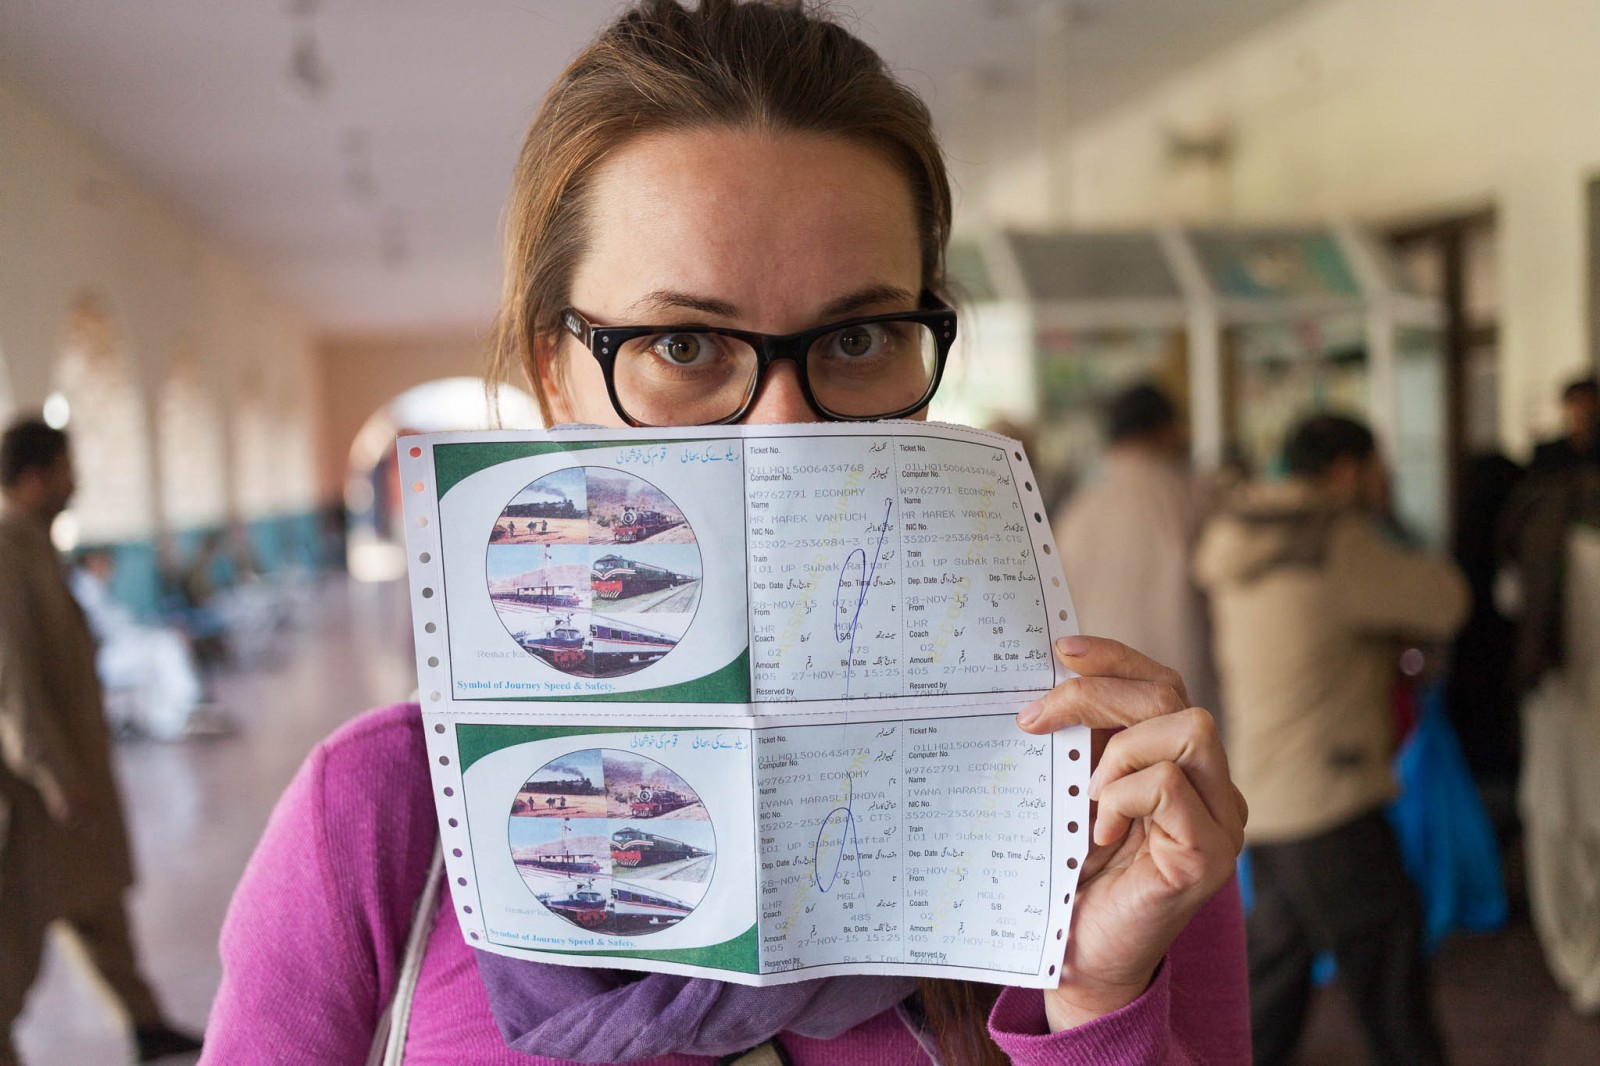 ریلوے کی بحالی قوم کی خوشحالی
Symbol of Journey Speed & Safety.
Remarks
Ticket No. ٹکٹ نمبر
01LHQ15006434768
Computer No. کمپیوٹر نمبر
W9762791 ECONOMY
Name نام
MR MAREK VANTUCH
NIC No. شناختی کارڈ نمبر
35202-2536984-3 CTS
Train ٹرین
101 UP Subak Raftar
Dep. Date تاریخ روانگی Dep. Time وقت روانگی
28-NOV-15 07:00
From از To تا
LHR MGLA
Coach کوچ S/B سیٹ برتھ
02 47S
Amount رقم Bk. Date تاریخ بکنگ
405 27-NOV-15 15:25
Reserved by
ZAKIA Rs 5 Ins
Ticket No. ٹکٹ نمبر
01LHQ15006434768
Computer No. کمپیوٹر نمبر
W9762791 ECONOMY
Name نام
MR MAREK VANTUCH
NIC No. شناختی کارڈ نمبر
35202-2536984-3 CTS
Train ٹرین
101 UP Subak Raftar
Dep. Date تاریخ روانگی Dep. Time وقت روانگی
28-NOV-15 07:00
From از To تا
LHR MGLA
Coach کوچ S/B سیٹ برتھ
02 47S
Amount رقم Bk. Date تاریخ بکنگ
405 27-NOV-15 15:25
Reserved by
ZAKIA Rs 5 Ins
ریلوے کی بحالی قوم کی خوشحالی
Symbol of Journey Speed & Safety.
Remarks
Ticket No. ٹکٹ نمبر
01LHQ15006434774
Computer No. کمپیوٹر نمبر
W9762791 ECONOMY
Name نام
IVANA HARASLIONOVA
NIC No. شناختی کارڈ نمبر
35202-2536984-3 CTS
Train ٹرین
101 UP Subak Raftar
Dep. Date تاریخ روانگی Dep. Time وقت روانگی
28-NOV-15 07:00
From از To تا
LHR MGLA
Coach کوچ S/B سیٹ برتھ
02 48S
Amount رقم Bk. Date تاریخ بکنگ
405 27-NOV-15 15:25
Reserved by
ZAKIA Rs 5 Ins
Ticket No.
01LHQ15006434774
Computer No. کمپیوٹر نمبر
W9762791 ECONOMY
Name نام
IVANA HARASLIONOVA
NIC No. شناختی کارڈ نمبر
35202-2536984-3 CTS
Train ٹرین
101 UP Subak Raftar
Dep. Date تاریخ روانگی Dep. Time وقت روانگی
28-NOV-15 07:00
From از To تا
LHR MGLA
Coach کوچ S/B سیٹ برتھ
02 48S
Amount رقم Bk. Date تاریخ بکنگ
405 27-NOV-15 15:25
Reserved by